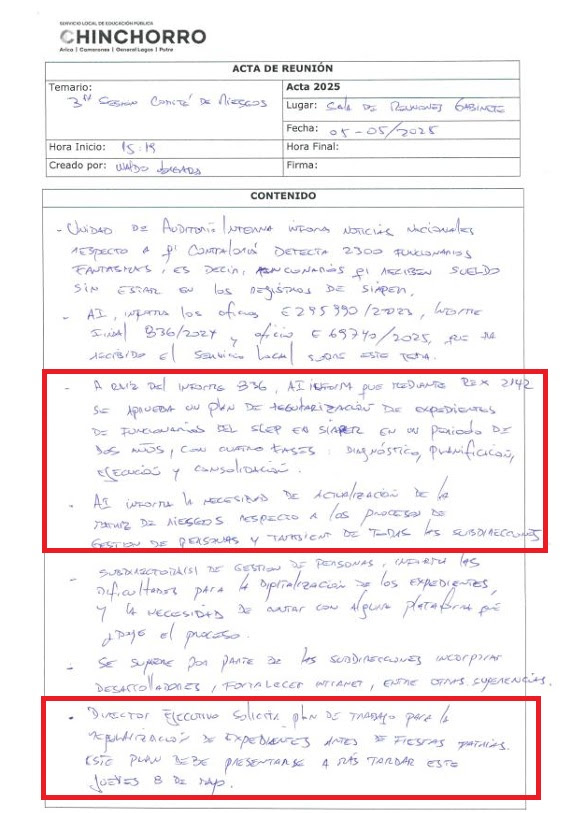 SERVICIO LOCAL DE EDUCACIÓN PÚBLICA
CHINCHORRO
Arica | Camarones | General Lagos | Putre
ACTA DE REUNIÓN
Temario:
3ra SESIÓN COMITÉ DE RIESGOS
Acta 2025
Lugar: SALA DE REUNIONES GABINETE
Fecha: 05-05/2025
Hora Inicio: 15:19
Hora Final:
Creado por:
Firma:
CONTENIDO
- UNIDAD DE AUDITORÍA INTERNA INFORMA NOTICIAS NACIONALES
RESPECTO A q' CONTRALORÍA DETECTA 2300 FUNCIONARIOS
FANTASMAS, ES DECIR, FUNCIONARIOS q' RECIBEN SUELDO
SIN ESTAR EN LOS REGISTROS DE SIAPER.
- AI, INFORMA LOS OFICIOS E295990/2023, INFORME
FINAL 836/2024 y OFICIO E69740/2025, QUE HA
RECIBIDO EL SERVICIO LOCAL SOBRE ESTE TEMA.
- A RAIZ DEL INFORME 836, AI INFORMA QUE MEDIANTE REX 2142
SE APRUEBA UN PLAN DE REGULARIZACIÓN DE EXPEDIENTES
DE FUNCIONARIOS DEL SLEP EN SIAPER EN UN PERIODO DE
DOS AÑOS, CON CUATRO FASES: DIAGNÓSTICO, PLANIFICACIÓN,
EJECUCIÓN Y CONSOLIDACIÓN.
- AI INFORMA LA NECESIDAD DE ACTUALIZACIÓN DE LA
MATRIZ DE RIESGOS RESPECTO A LOS PROCESOS DE
GESTION DE PERSONAS Y TAMBIEN DE TODAS LAS SUBDIRECCIONES
- SUBDIRECTORA(S) DE GESTION DE PERSONAS, INFORMA LAS
DIFICULTADES PARA LA DIGITALIZACIÓN DE LOS EXPEDIENTES,
Y LA NECESIDAD DE CONTAR CON ALGUNA PLATAFORMA QUE
APOYE EL PROCESO.
- SE SUGIERE POR PARTE DE LAS SUBDIRECCIONES INCORPORAR
DESARROLLADORES, FORTALECER INTRANET, ENTRE OTRAS SUGERENCIAS.
- DIRECTOR EJECUTIVO SOLICITA PLAN DE TRABAJO PARA LA
REGULARIZACIÓN DE EXPEDIENTES ANTES DE FIESTAS PATRIAS.
ESTE PLAN DEBE PRESENTARSE A MÁS TARDAR ESTE
JUEVES 8 DE MAYO.